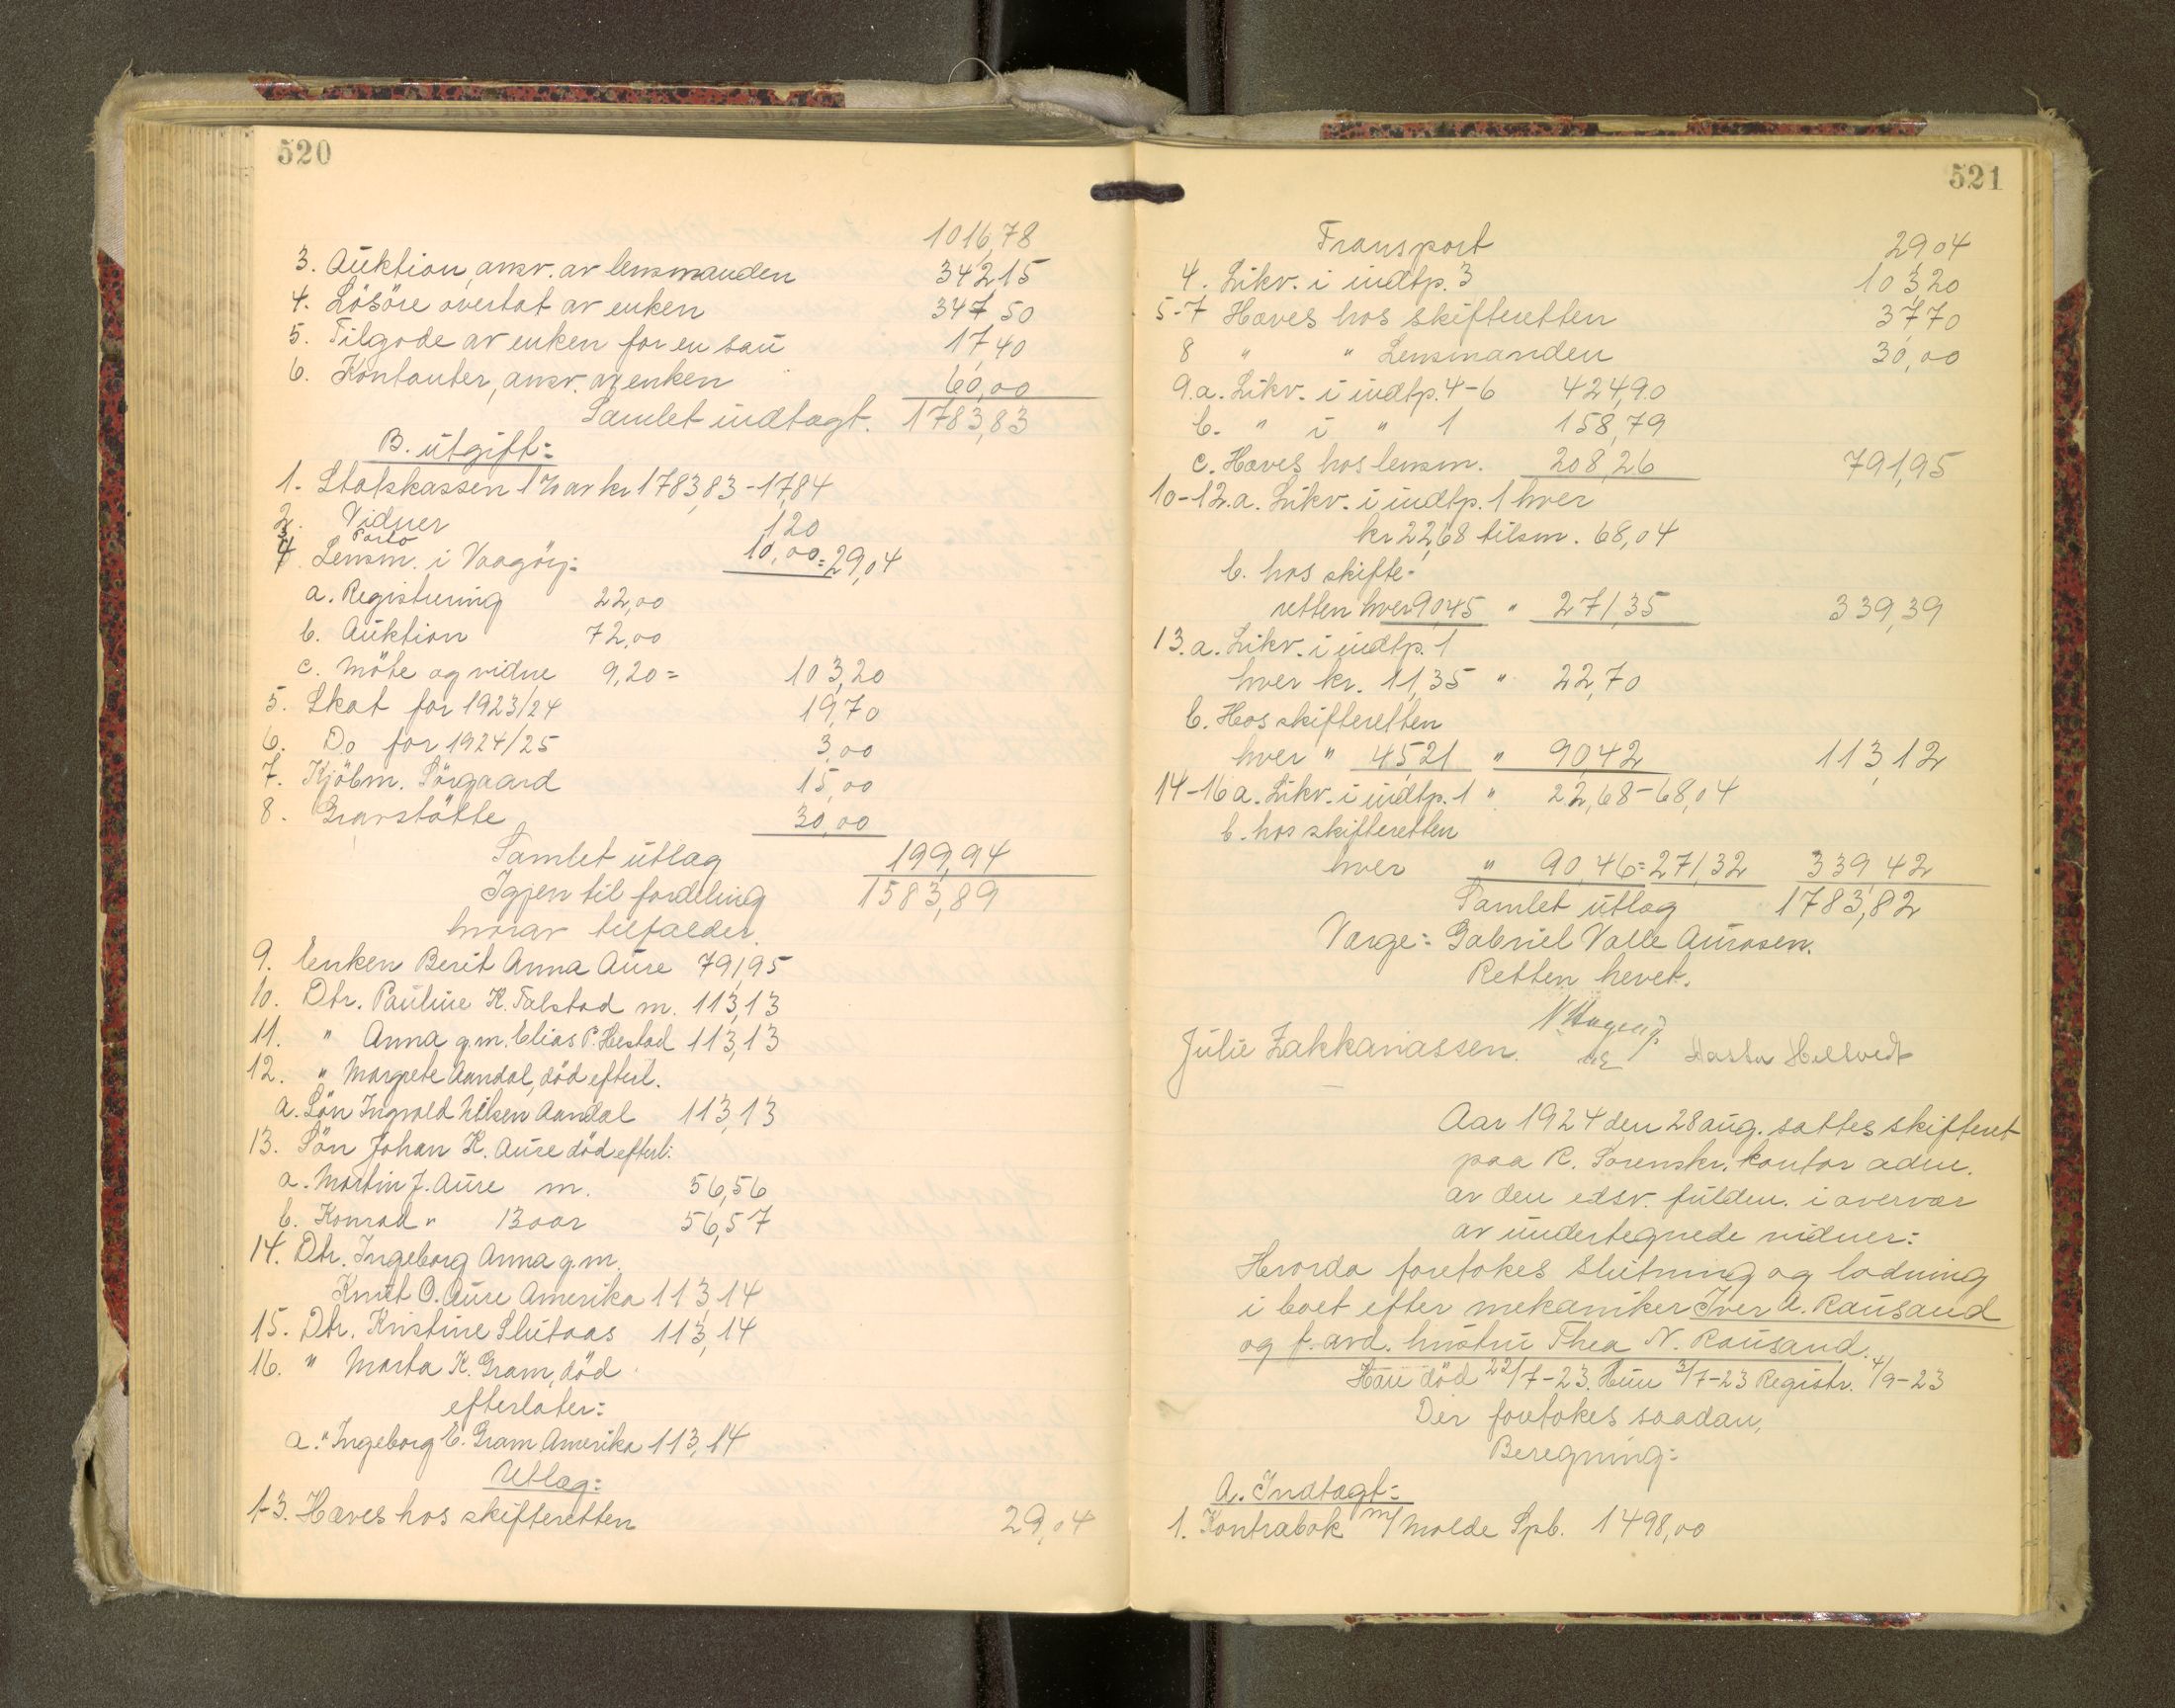 520
1016,78
3. Auktion, ansv. av lensmanden 342,15
4. Lösöre overtat av enken 347,50
5. Tilgode av enken for en sau 17,40
6. Kontanter, ansv. av enken 60,00
Samlet indtægt. 1783,83
B. utgift:
1. Statskassen 1% av kr 1783,83 - 17,84
2. Vidner 1,20
3 Porto
4. Lensm. i Vaagöy: 10,00 = 29,04
a. Registrering 22,00
b. Auktion 72,00
c. Möte og vidne 9,20 = 103,20
5. Skat for 1923/24 19,70
6. Do for 1924/25 3,00
7. Kjöbm. Sörgaard 15,00
8. Gravstötte 30,00
Samlet utlæg 199,94
Igjen til fordeling 1583,89
hvorav tilfalder.
9. Enken Berit Anna Aure 791,95
10. Dtr. Pauline K. Talstad m. 113,13
11. " Anna g.m. Elias P. Hestad 113,13
12. " Margrete Aandal, död efterl.
a. Sön Ingvald Nilsen Aandal 113,13
13. Sön Johan K. Aure död efterl:
a. Martin J. Aure m. 56,56
b. Konrad " 13 aar 56,57
14. Dtr. Ingeborg Anna g.m.
Knut O. Aure Amerika 113,14
15. Dtr. Kristine Slutaas 113,14
16. " Marta K. Gram, död
efterlater:
a. " Ingeborg E. Gram Amerika 113,14
Utlæg:
1-3. Hæves hos skifteretten 29,04
521
Transport 29,04
4. Likv. i indtp. 3 103,20
5-7 Hæves hos skifteretten 37,70
8 " " Lensmanden 30,00
9.a. Likv. i indtp. 4-6 424,90
b. " i " 1 158,79
c. Hæves hos lensm. 208,26 791,95
10-12.a. Likv. i indtp. 1 hver
kr 22,68 tilsm. 68,04
b. hos skifte-
retten hver 90,45 " 271,35 339,39
13. a. Likv. i indtp. 1
hver kr. 11,35 " 22,70
b. Hos skifteretten
hver " 45,21 " 90,42 113,12
14-16 a. Likv. i indtp. 1 " 22,68 - 68,04
b. hos skifteretten
hver " 90,46 = 271,32 339,42
Samlet utlæg 1783,82
Værge: Gabriel Valle Aurosen.
Retten hevet.
Julie Zakkariassen.
Aar 1924 den 28 aug. sattes skifteret
paa R. Sorenskr. kontor adm.
av den edsv. fuldm. i overvær
av undertegnede vidner:
Hvorda foretokes Slutning og lodning
i boet efter mekaniker Iver A. Rausand
og f. avd. hustru Thea N. Rausand.
Han död 22/7-23. Hun 3/7-23 Registr. 4/9-23
Der foretokes saadan,
Beregning:
A. Indtægt:
1. Kontrabok m/ Molde Spb. 1498,00